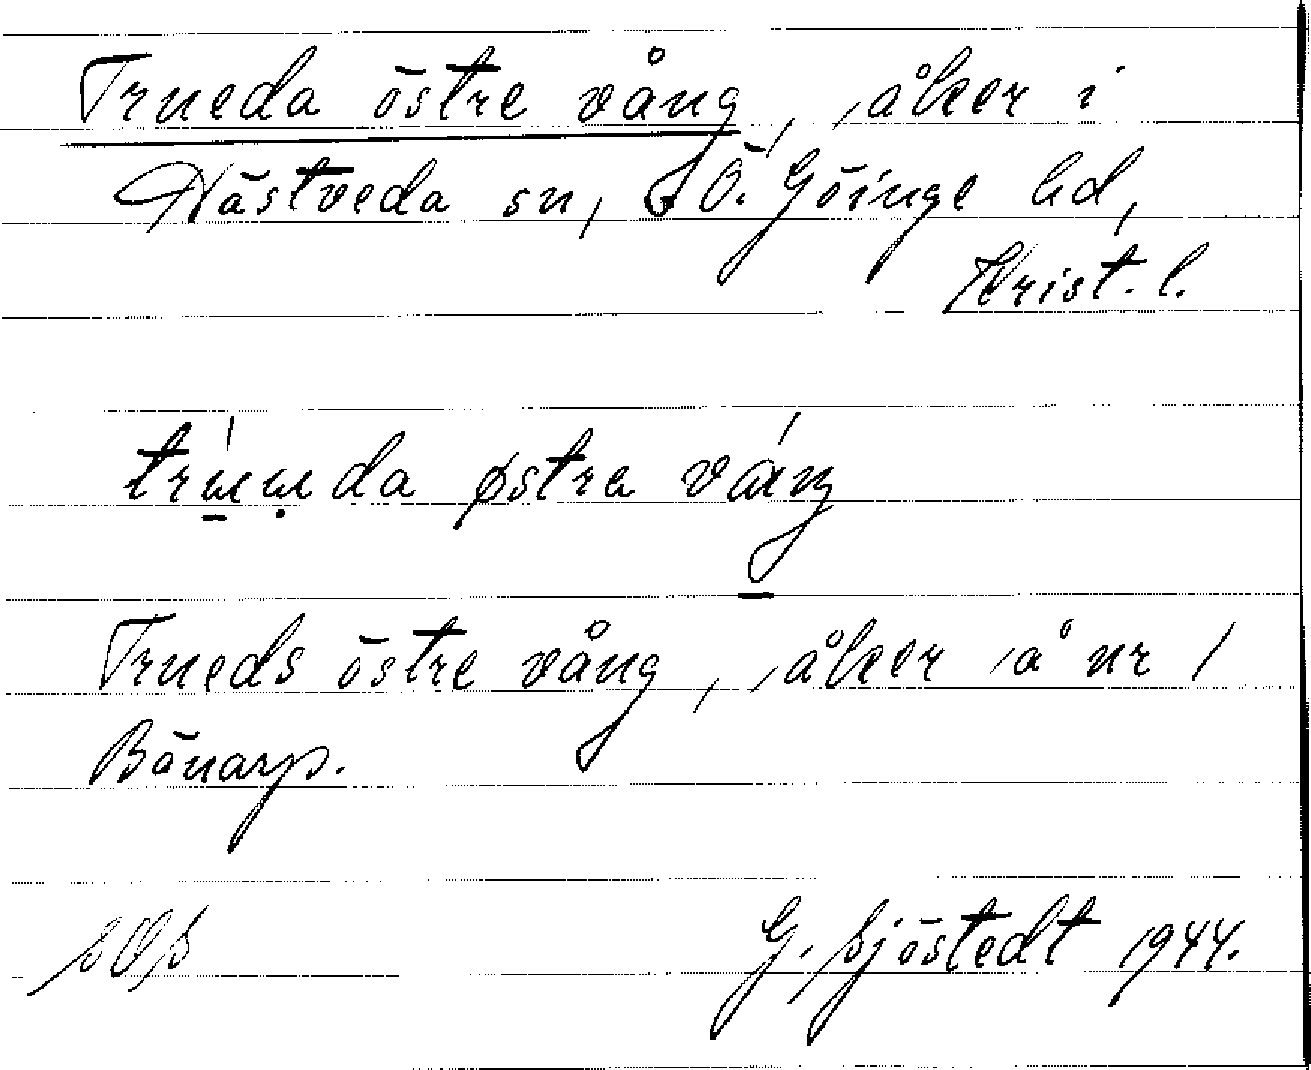 Trueda östre vång, åker i
Hästveda sn, Ö. Göinge hd,
Krist. l.
östra
Trueds östre vång, åker å nr 1
Bönarp.
G. Sjöstedt 1944.